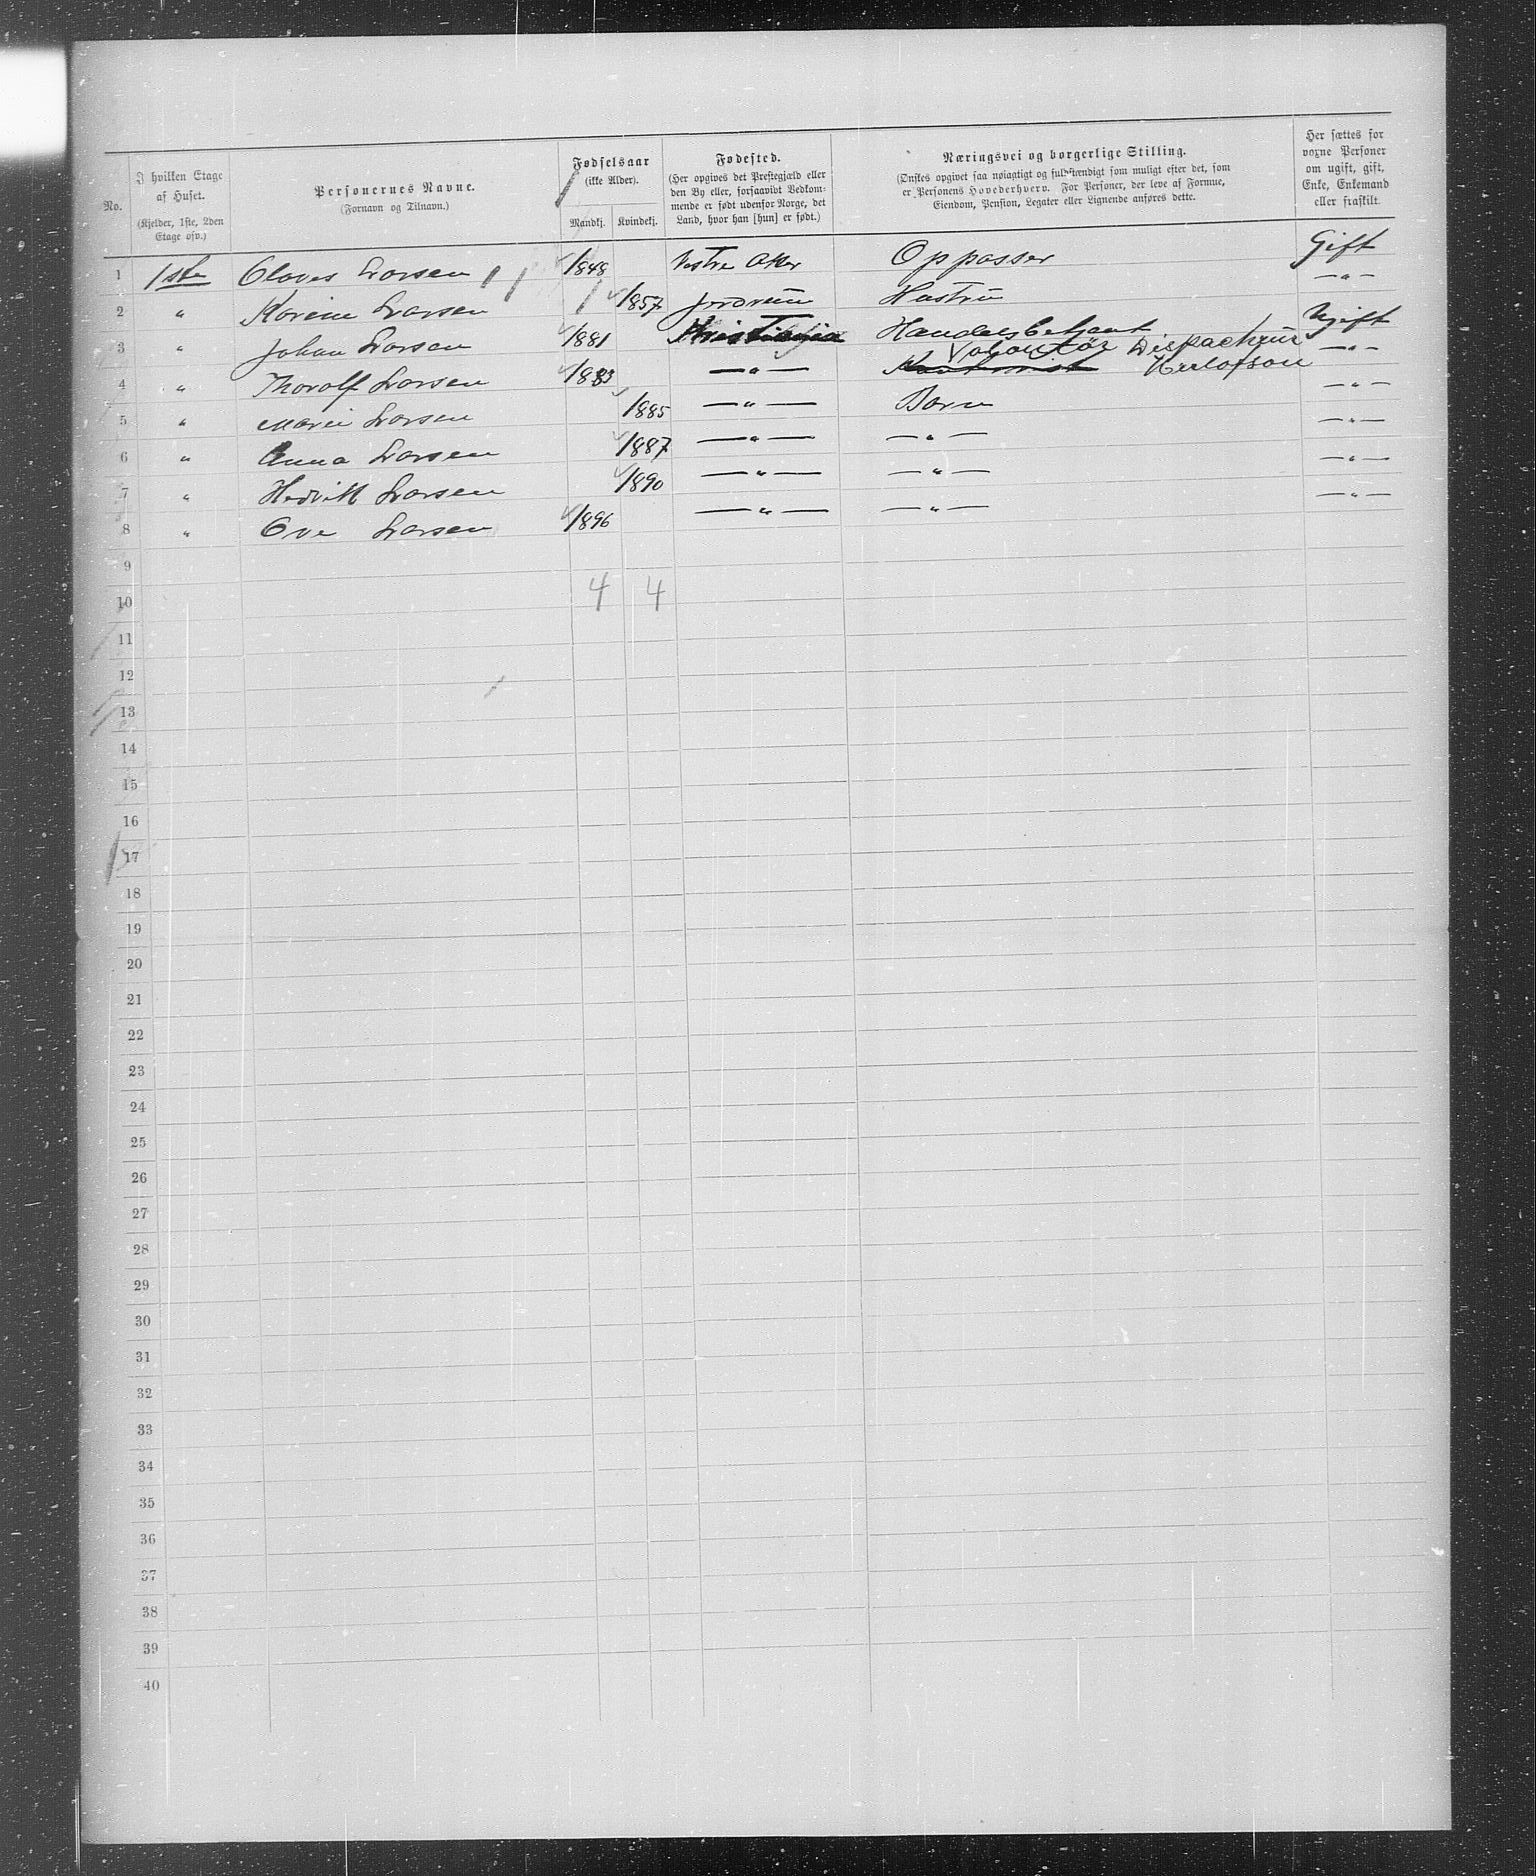 No.
I hvilken Etage af Huset.
(Kjelder, 1ste, 2den Etage osv.)
Personernes Navne.
(Fornavn og Tilnavn.)
Fødselsaar
(ikke Alder).
Mandkj. Kvindekj.
Fødested.
(Her opgives det Præstegjæld eller
den By eller, forsaavidt Vedkom-
mende er født udenfor Norge, det
Land, hvor han [hun] er født.)
Næringsvei og borgerlige Stilling.
(Ønskes opgivet saa nøiagtigt og fuldstændigt som muligt efter det, som
er Personens Hovederhverv. For Personer, der leve af Formue,
Eiendom, Pension, Legater eller Lignende anføres dette.
Her sættes for
voxne Personer
om ugift, gift,
Enke, Enkemand
eller fraskilt.
1 1ste Olaves Larsen 1848 Vestre Aker Oppasser Gift
2 " Karine Larsen 1857 Hustru —"—
3 " Johan Larsen 1881 Kristiania Handelsbetjent Ugift
Volontør Dispachør
4 " Thoralf Larsen 1883 —"— Herlofson —"—
5 " Marie Larsen 1885 —"— Barn —"—
6 " Anna Larsen 1887 —"— —"— —"—
7 " Larsen 1890 —"— —"— —"—
8 " Ove Larsen 1896 —"— —"— —"—
9
4 4
10
11
12
13
14
15
16
17
18
19
20
21
22
23
24
25
26
27
28
29
30
31
32
33
34
35
36
37
38
39
40